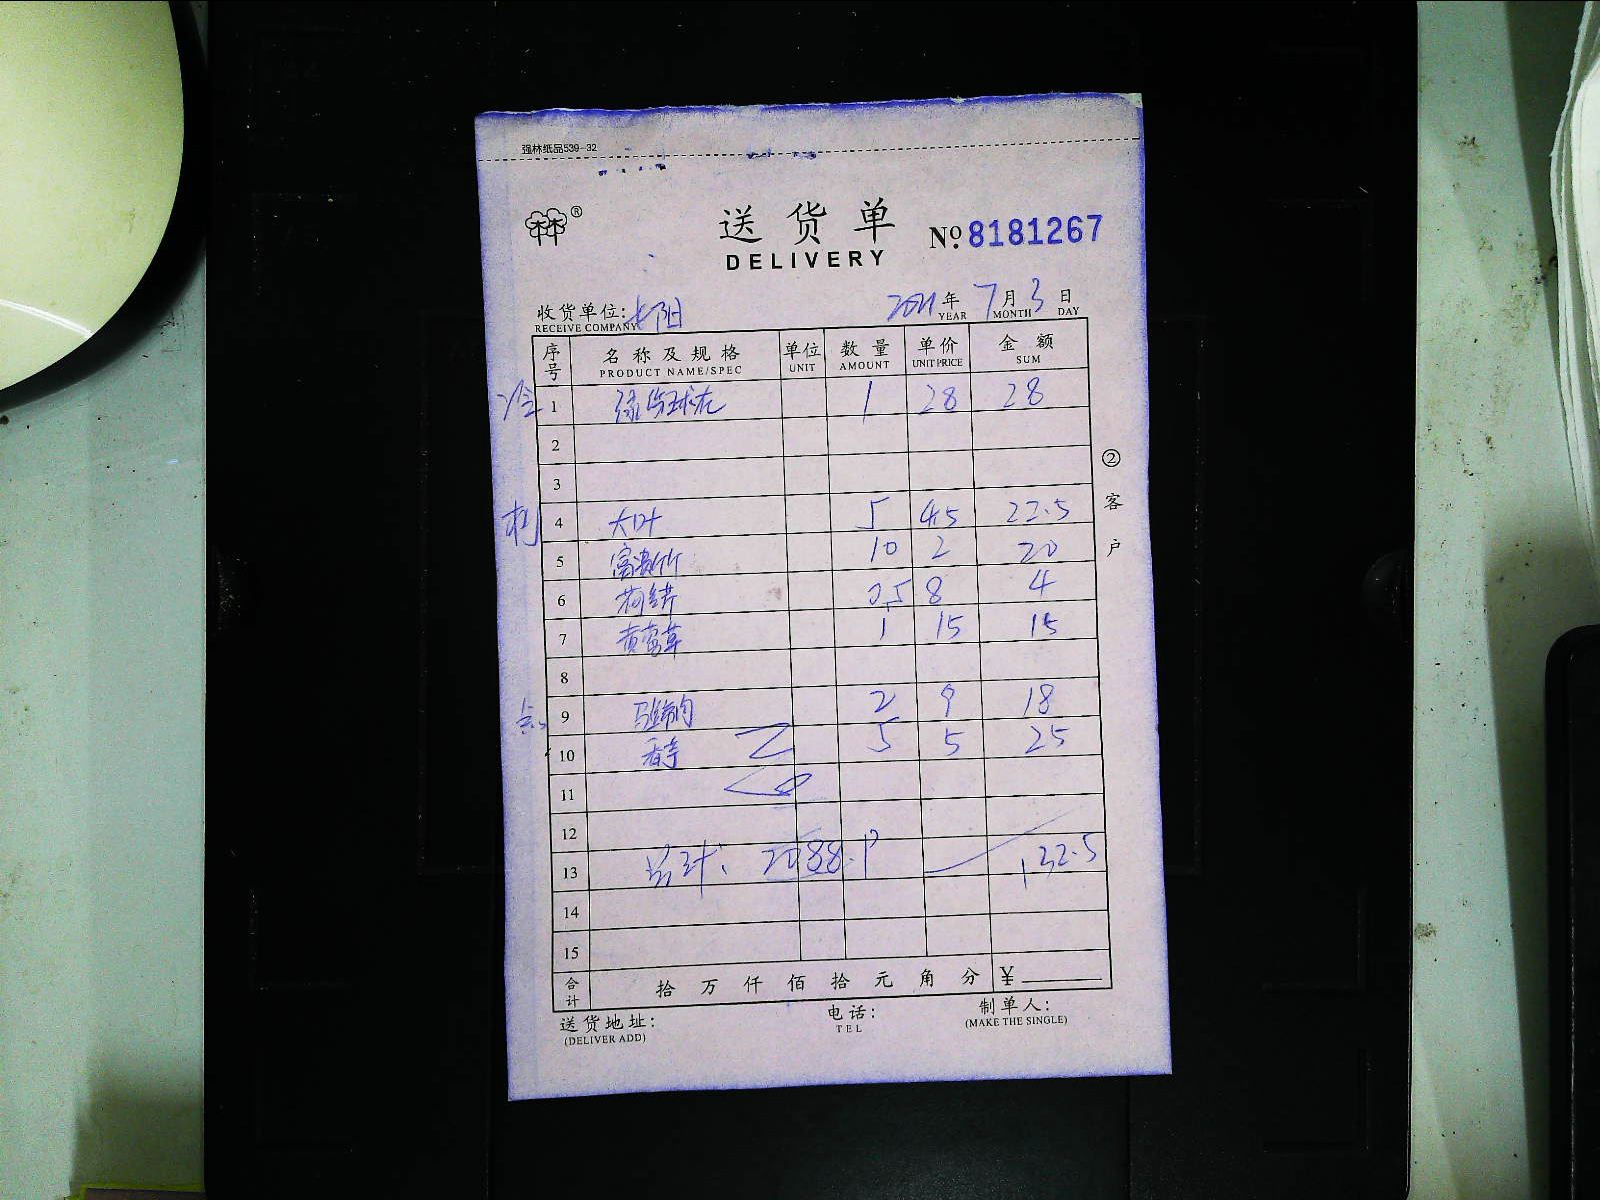 强林纸品539-32
®
送货单
DELIVERY
No. 8181267
收货单位: 七阳 2021年 7月 3日
RECEIVE COMPANY YEAR MONTH DAY
序号 名称及规格 单位 数量 单价 金额
PRODUCT NAME/SPEC UNIT AMOUNT UNIT PRICE SUM
冷 1 1 28 28
2
3
4 大叶 5 4.5 22.5
5 富贵竹 10 2 20
6 0.5 8 4
7 黄莺草 1 15 15
8
9 2 9 18
10 香芋 5 5 25
11
12
13 总计: 132.5
14
15
合计 拾 万 仟 佰 拾 元 角 分 ¥
送货地址: 电话: 制单人:
(DELIVER ADD) TEL (MAKE THE SINGLE)
② 客户